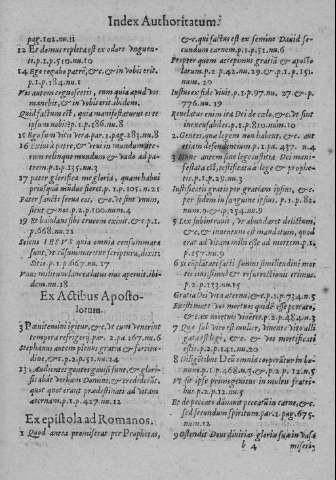 Index Authoritatum.
pag.102.nu.11
12 Et domus repleta est ex odore unguenti.
et.p.1.p.510.nu.10
14 Ego rogabo patrē, &c. & in vobis erit.
p.1.p.184.nu.
Vos autem cognoscetis, eum quia apud vos
manebit, & in vobis erit. ibidem.
Quid factum est, quia manifestaturus es te
ipsum nobis? p.1.p.186.nu.8
15 Ego sum vitis vera par.1.pag.283.nu.8
16 Exivi à patre, & veni in mundum: iterum
relinquo mundum & vado ad patrem.
p.1.p.135.nu.3
17 pater glorifica me gloria, quam habui
priusquā mundus fieret. p.1.p.105.n.21
Pater sancte serva eos, &c. ut sint vnum,
sicut & nos p.2.p.100.num.4
19 & baiulans sibi crucem exivit, &c.p.1.
p.668.nu.21
Sciens IESVS quia omnia consummata
sunt, vt consummaretur scriptura, dixit:
Sitio p.1.p.667.nu.27
Vnus militum lancea latus eius aperuit. ibidem.
nu.18
Ex Actibus Apostolorum.
3 Pœnitemini igitur, &c. vt cum venerint
tempora refrigerij. per.2.pa.167.nu.6
Stephanus autem plenus gratia & fortitudine,
&c.p.2.p.52.nu.24
13 Audientes gentes gavisi sunt, & glorificabant
verbum Domini, & crediderūt,
quot quot erant prædestinati ad vitam
æternam.p.1.p.427.nu.12
Ex epistola ad Romanos.
1 Quod antea promiserat per Prophetas,
&c. qui factus est ei ex semine David secundum
carnem.p.1.p.51.nu.6
Propter quem accepimus gratiā & apostolatum.
p.2.p.42.nu.29.& p.1.p.151.
num.20
Iustus ex fide vivit.p.1.p.97.nu.27.& p.
776.nu.19
Revelatur enim ira Dei de cœlo, &c. ut sint
inexcusabiles.p.1.p.810.nu.10
2 Gentes, quæ legem non habent, &c.
p.1.pa.437. n.4
3 Nunc autem sine lege iustitia Dei manifestata
est, testificata à lege & prophetis.
p.1.p.29.nu.3
Iustificati gratis per gratiam ipsius, &
per fidem in sanguine ipsius.p.1.p.82.
num.9.& p.734.nu.5
5 Lex subintravit, vt abundaret delictum,
&c.
6 si complantati sumus similitudini mortis
eius, simul & resurrectionis erimus.
p.2.p.173.nu.15
Gratia Dei vita æterna &c.p.1.p.734.n.5
p.1.p.484.n.3
7 Quæ sub viro est mulier, vivente viro alligata
est legi, &c. & vos mortificati
estis.p.2.p.141.nu.20
8 Diligentibus Deū omnia cooperātur in bonum.
p.1.p.468.n.3.& p.2.p.12.n.5
Vt sit ipse primogenitus in multis fratribus.
p.2.p.12.nu.5
Et de peccato damnavit peccatū in carne, &c.
sed secundum spiritum.par.1.pag.675.
num.12
9 Ostendit Deus divitias gloriæ suæ in vasa
b 4
misericor-